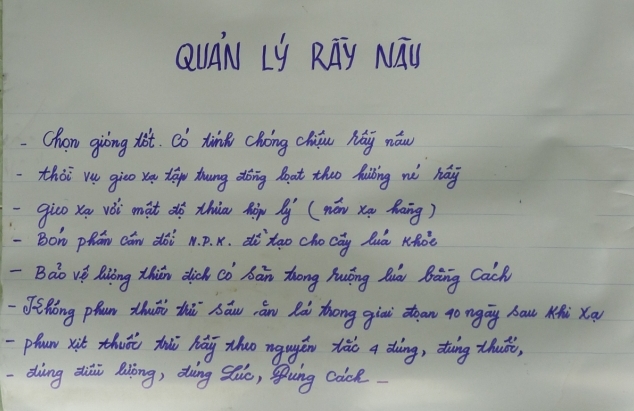 QUẢN LÝ RẦY NÂU
- Chọn giống tốt. Có tính chống chịu rầy nâu
- thời vụ gieo xạ tập trung đồng loạt theo hướng né rầy
- gieo xạ với mật độ thưa hợp lý (nên xạ hàng)
- Bón phân cân đối N.P.K. để tạo cho cây lúa khỏe
- Bảo vệ lượng thiên địch có sẵn trong ruộng lúa bằng cách
- Không phun thuốc trừ sâu ăn lá trong giai đoạn 40 ngày sau khi xạ
- phun xịt thuốc trừ rầy theo nguyên tắc 4 đúng, đúng thuốc,
- đúng điều lượng, đúng Lúc, Đúng cách -